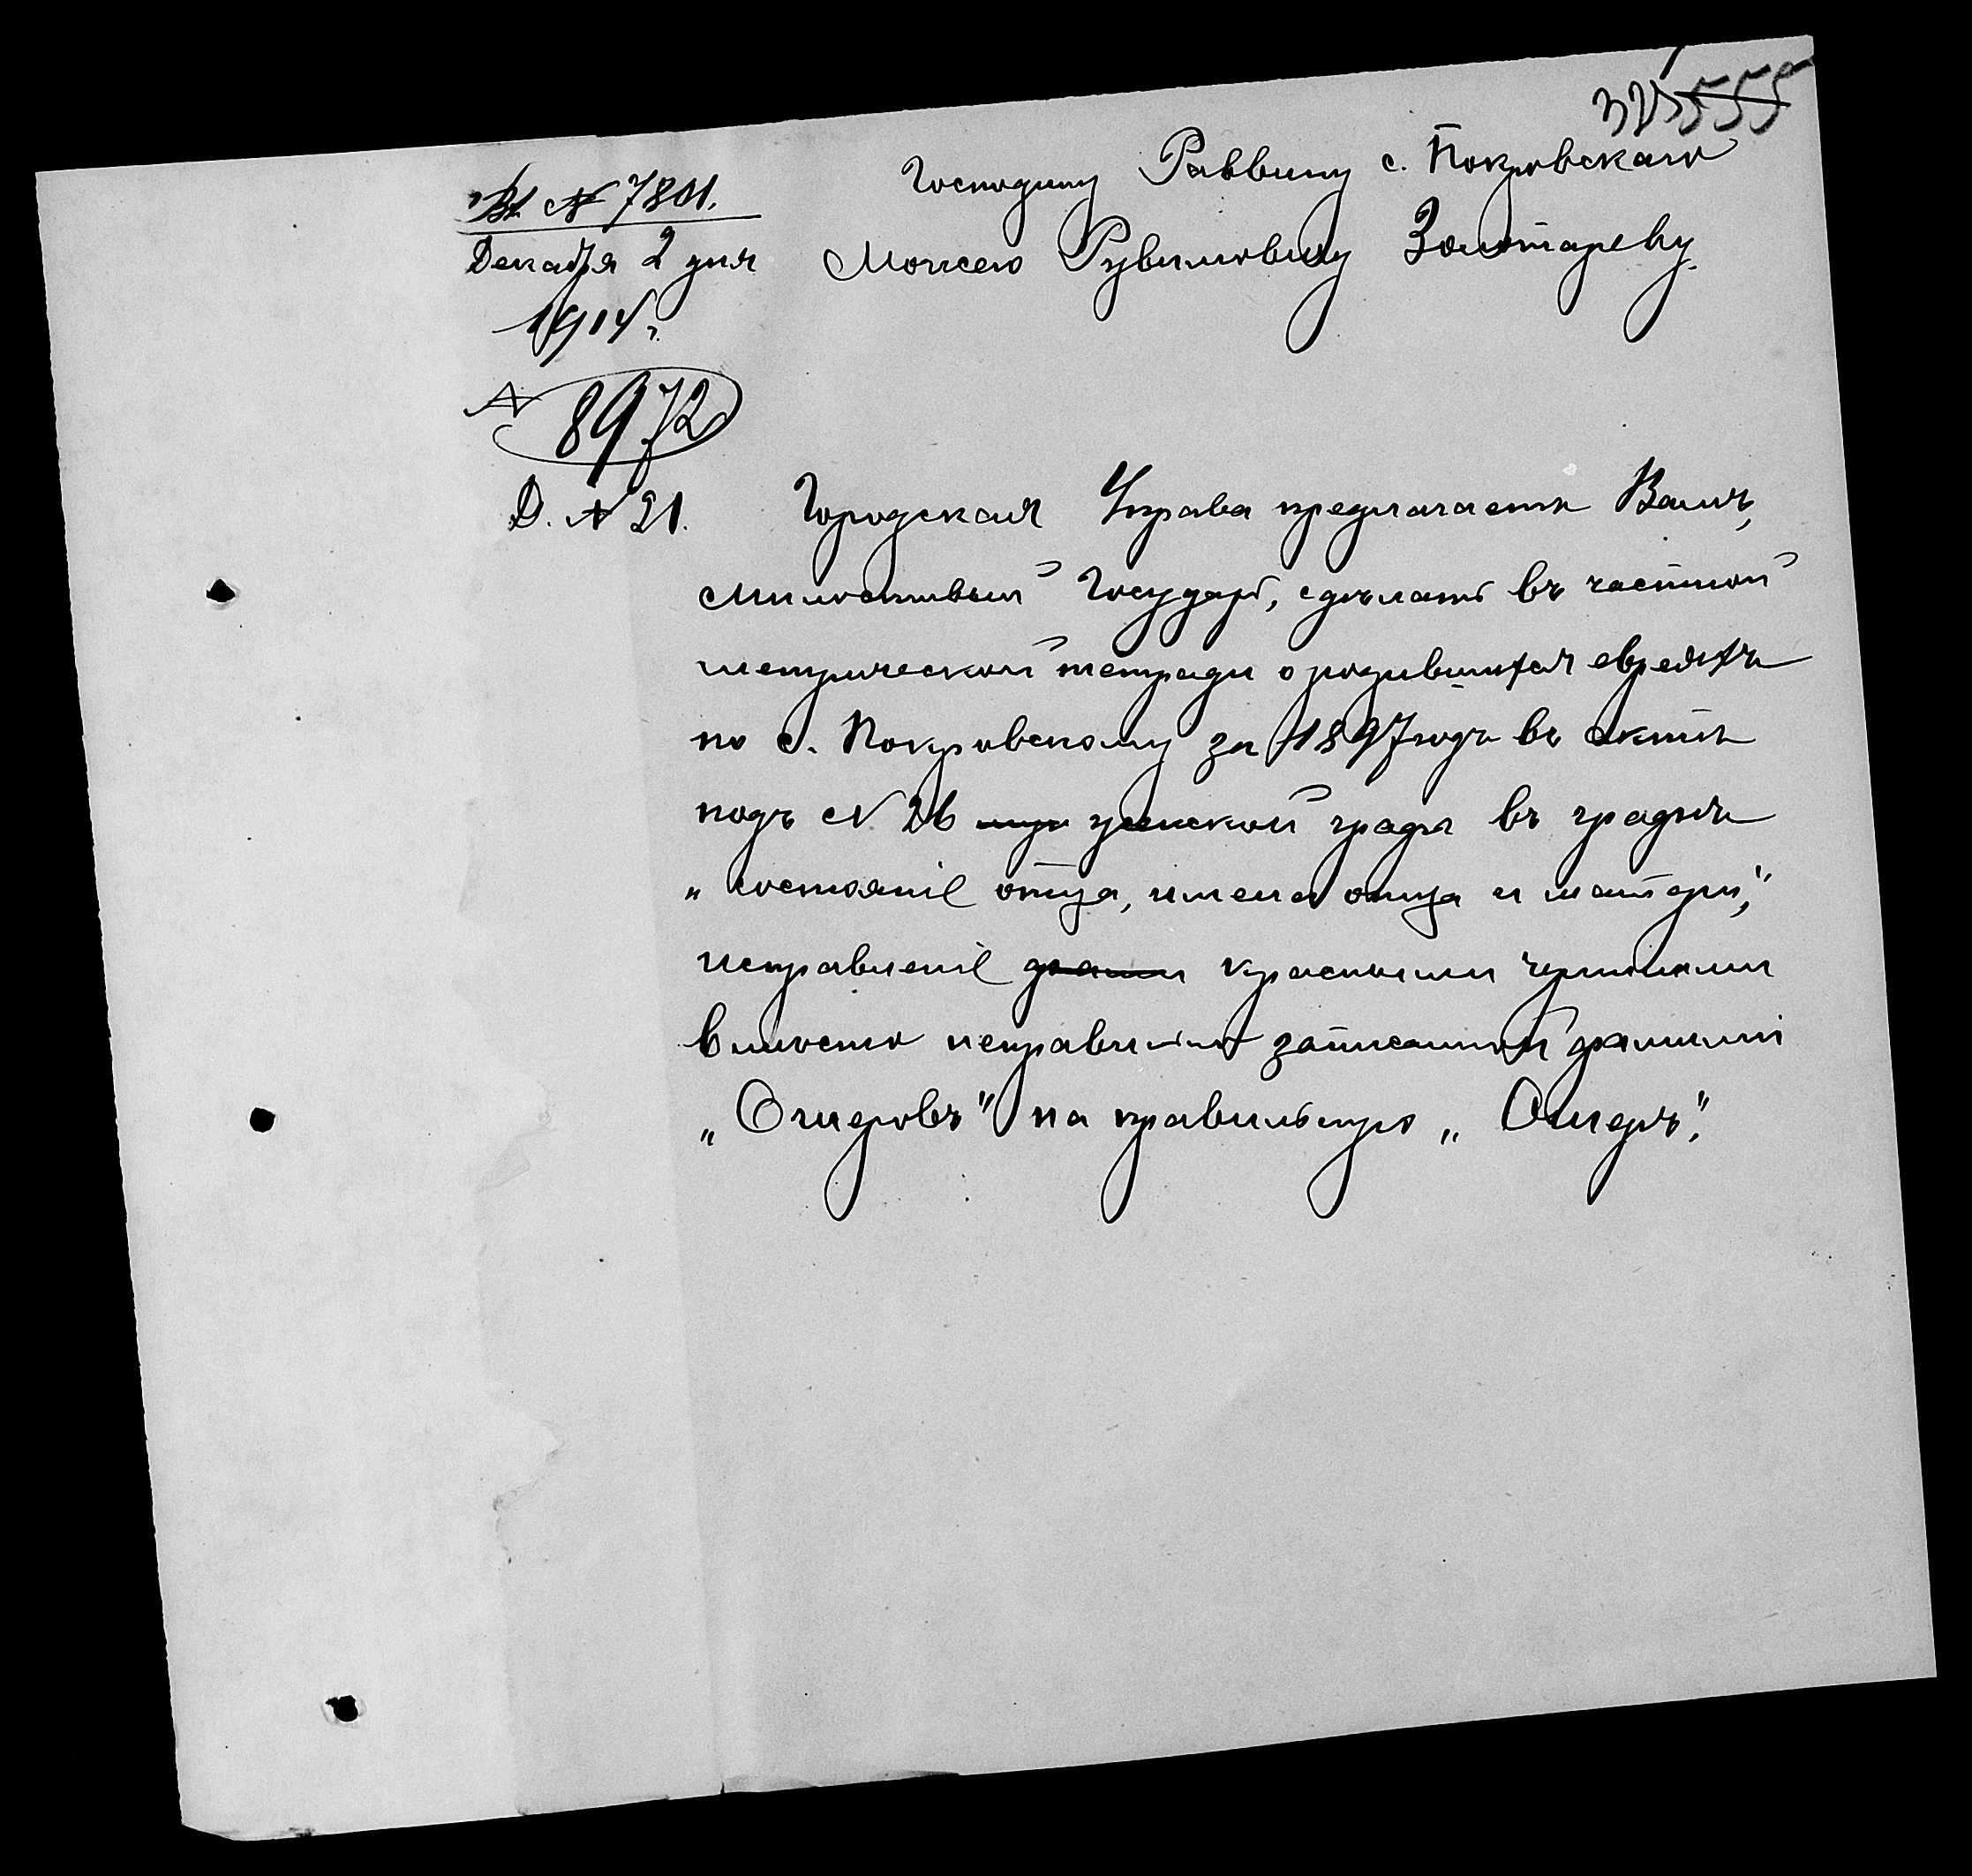 325 555
Вх. № 7801.
Декабря 2 дня
1914 г.
№ 8972
Д. № 21.
Господину Раввину с. Покровскаго
Моисею Рувимовичу Золотареву.
Городская Управа предлагаетъ Вамъ,
Милостивый Государь, сдѣлать въ частной
метрической тетради о родившихся евреяхъ
по с. Покровскому за 1897 годъ въ актѣ
подъ № 26 муж женской графы въ графѣ
„состояніе отца, имена отца и матери",
исправленіе красными чернилами
вмѣсто неправильно записанной фамиліи
„Ошеровъ" на правильную „Ошеръ".